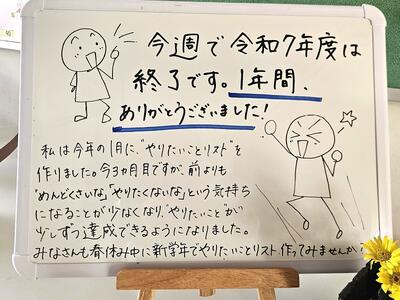 今週で令和7年度は
終了です。1年間、
ありがとうございました!
私は今年の1月に、"やりたいことリスト"を
作りました。今3ヵ月目ですが、前よりも
"めんどくさいな"、"やりたくないな"という気持ち
になることが少なくなり、"やりたいこと"が
少しずつ達成できるようになりました。
みなさんも春休み中に新学年でやりたいことリスト作ってみませんか?